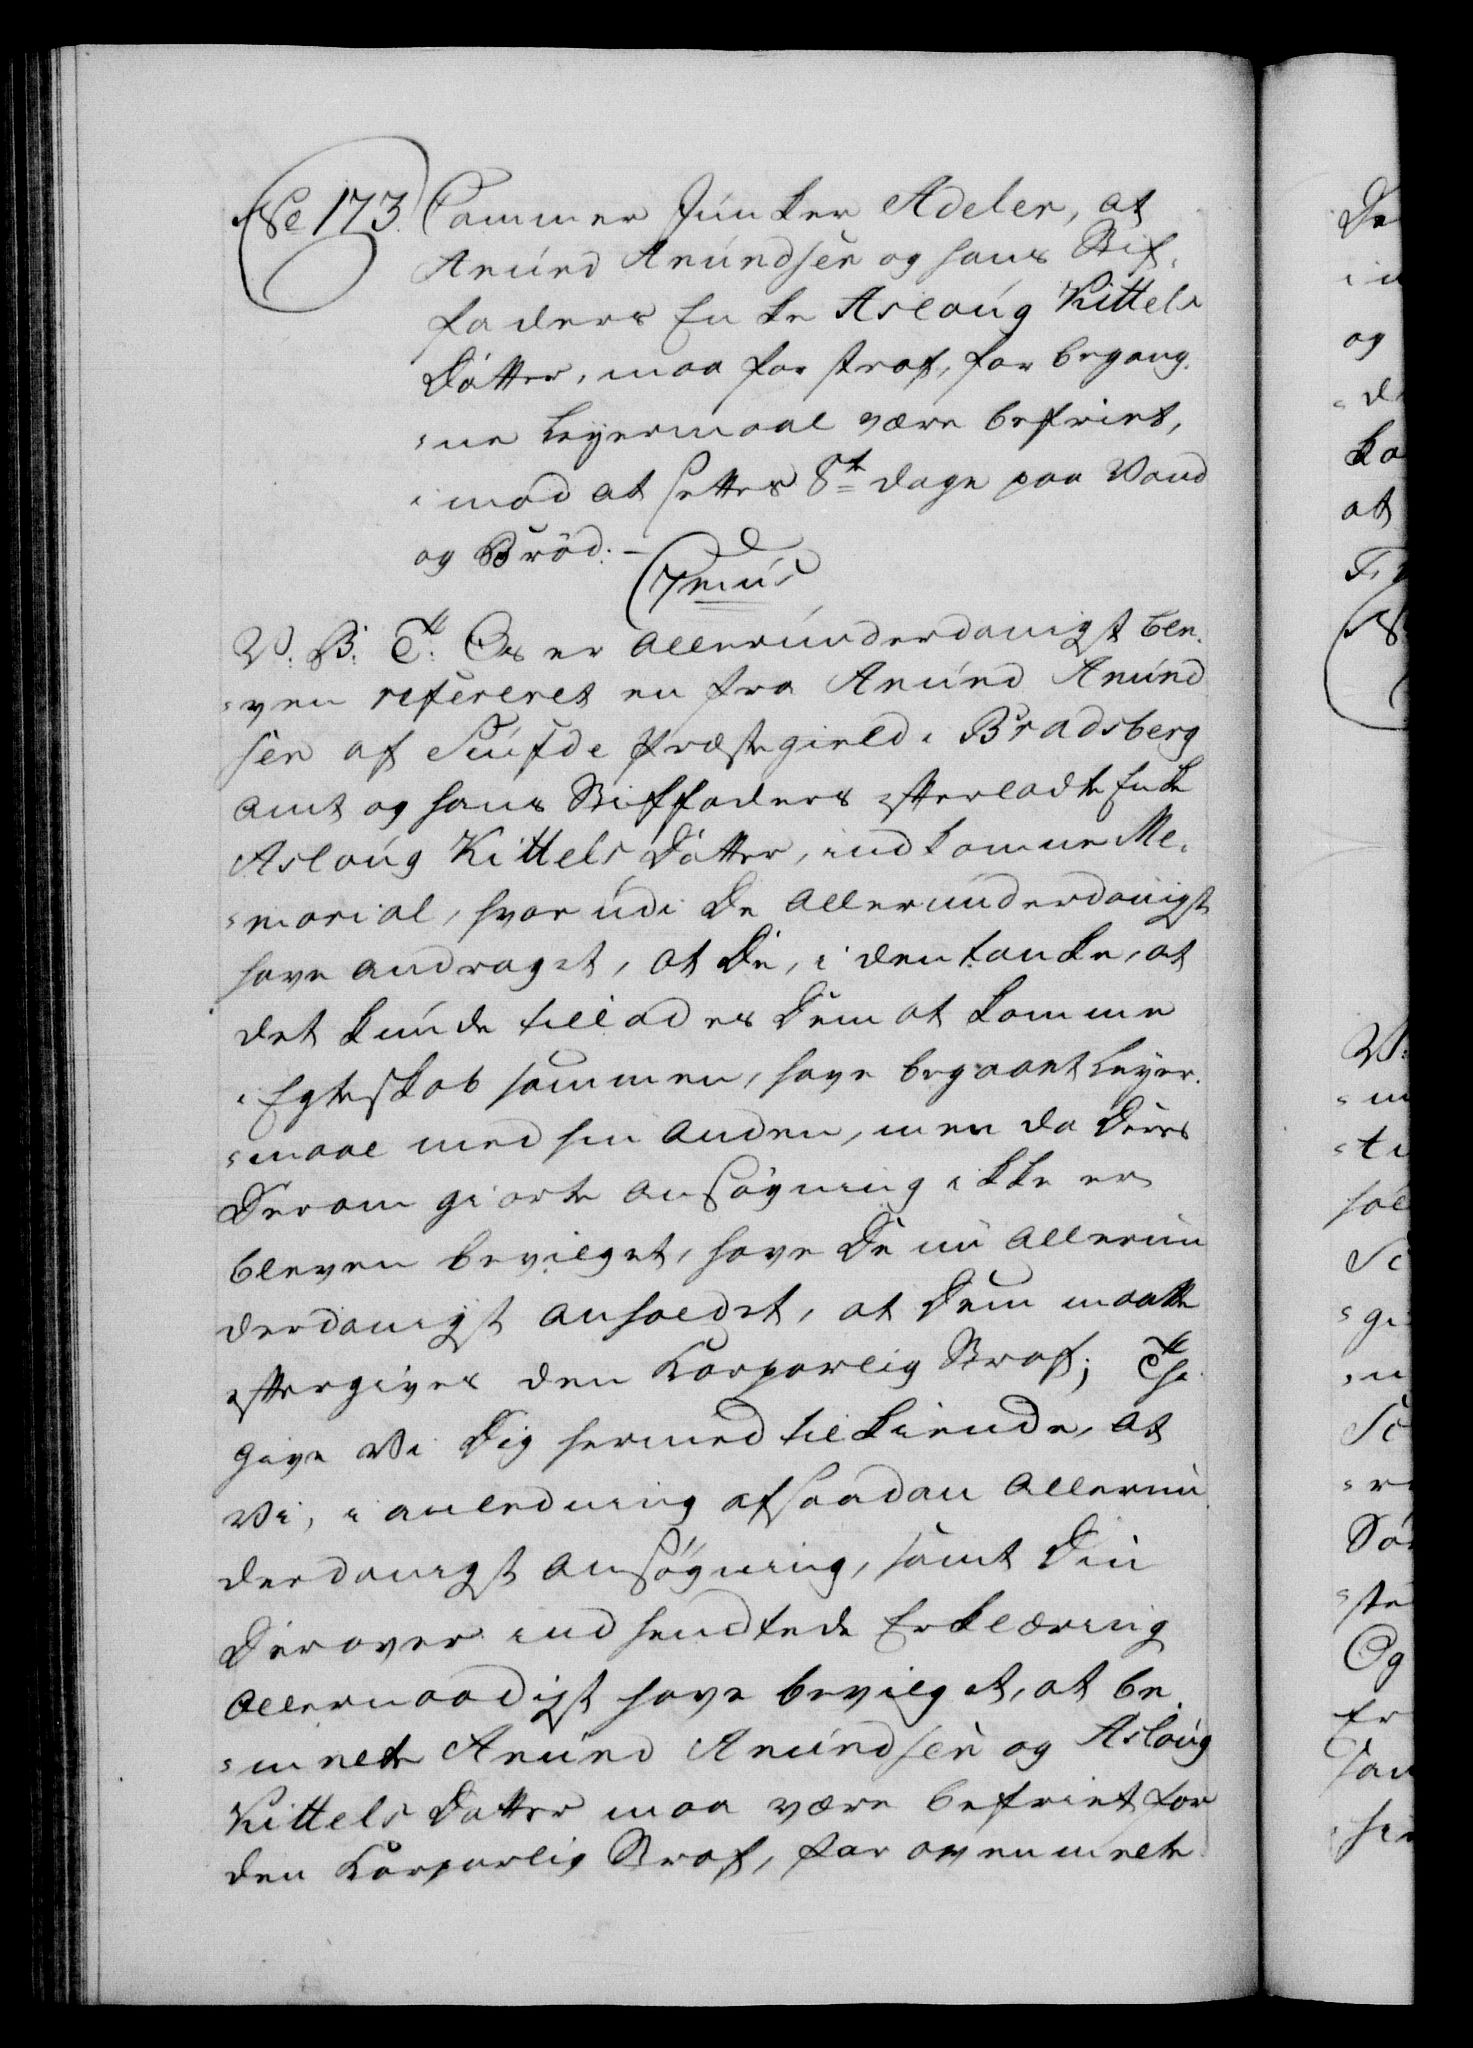 No 173. Cammer Junker Adeler, at
Anund Anundsen og hans Stif-
faders Enke Aslaug Kittels
Dötter, maa for straf, for begang-
-ne Leyermaal være befriet,
imod at settes 8te dage paa Vand
og Bröd. –
V. B. T. Os er allerunderdanigst ble-
-ven refereret en fra Anund Anund
sen af Siufde Præstegield i Bradsberg
amt og hans Stiffaders efterladte Enke
Aslaug Kittels Dötter, indkomne Me-
-morial, hvorudi De allerunderdanigst
have andraget, at De, i den tanke, at
det kunde tillades Dem at komme
i Egteskab sammen, have begaaet Leyer-
-maal med hin anden, men da Deres
Derom giorte ansögning ikke er
bleven bevilget, have De nu allerun
derdanigst anholdet, at Dem maatte
eftergives den Korporlig Straf; Thi
give Vi Dig hermed tilkiende, at
Vi, i anledning af saadan allerun
derdanigst ansögning, samt Din
Derover indsendtede Erklæring
allernaadigst have bevilget, at be-
-melte Anund Anundsen og Aslaug
Kittels Datter maa være befriet for
den Korporlig Straf, for ovenmelte